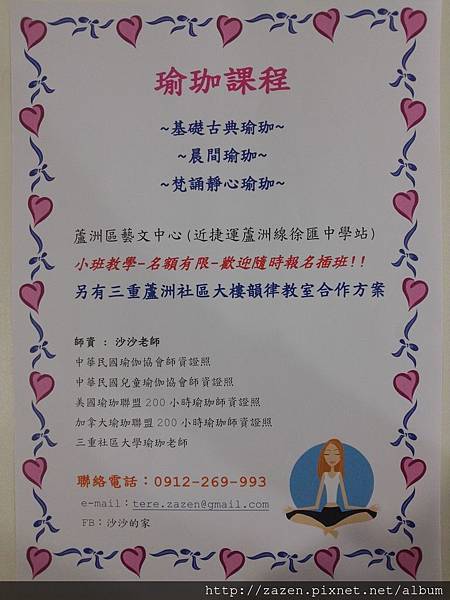 瑜珈課程
~基礎古典瑜珈~
~晨間瑜珈~
~梵誦靜心瑜珈~
蘆洲區藝文中心(近捷運蘆洲線徐匯中學站)
小班教學-名額有限-歡迎隨時報名插班!!
另有三重蘆洲社區大樓韻律教室合作方案
師資 : 沙沙老師
中華民國瑜伽協會師資證照
中華民國兒童瑜伽協會師資證照
美國瑜珈聯盟200小時瑜珈師資證照
加拿大瑜珈聯盟200小時瑜珈師資證照
三重社區大學瑜珈老師
聯絡電話：0912-269-993
e-mail：tere.zazen@gmail.com
FB：沙沙的家
http://zazen.pixnet.net/album